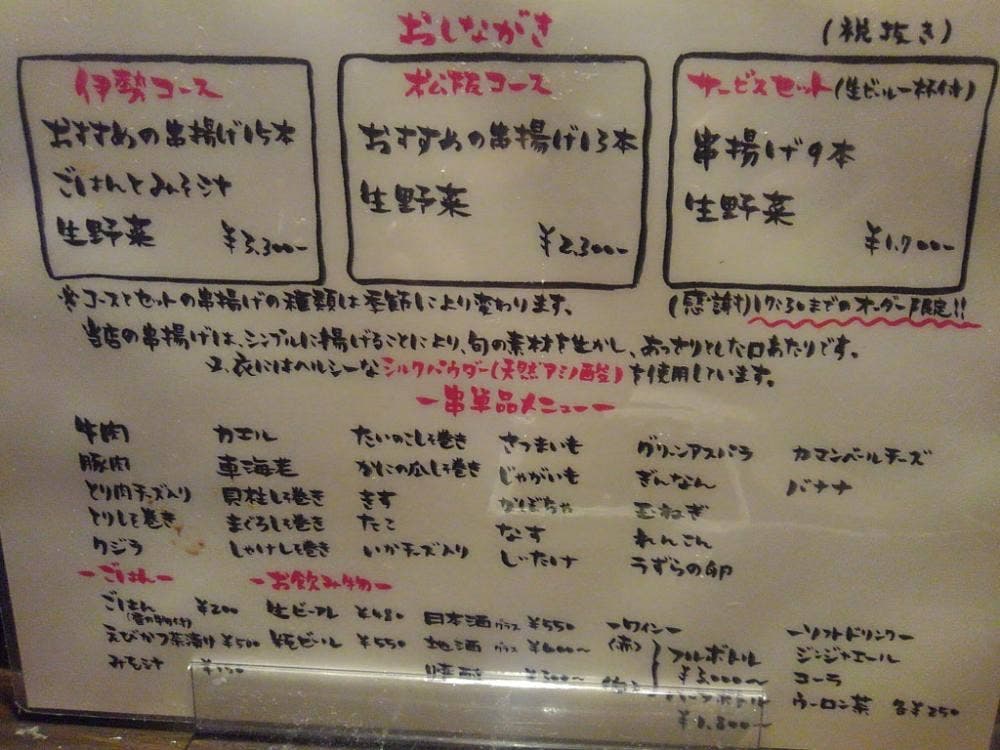 おしながき
(税抜き)
伊勢コース
おすすめの串揚げ15本
ごはんとみそ汁
生野菜
¥3,300-
松阪コース
おすすめの串揚げ13本
生野菜
¥2,300-
サービスセット(生ビール一杯付)
串揚げ9本
生野菜
¥1,700-
※コースとセットの串揚げの種類は季節により変わります。
(感謝)17:30までのオーダー限定!!
当店の串揚げは、シンプルに揚げることにより、旬の素材を生かし、あっさりとした口あたりです。
又、衣にはヘルシーなシルクパウダー(天然アミノ酸)を使用しています。
ー串単品メニューー
牛肉
豚肉
とり肉チーズ入り
とりしそ巻き
クジラ
カエル
車海老
貝柱しそ巻き
まぐろしそ巻き
しゃけしそ巻き
たいのこしそ巻き
かにの爪しそ巻き
きす
たこ
いかチーズ入り
さつまいも
じゃがいも
かぼちゃ
なす
しいたけ
グリーンアスパラ
ぎんなん
玉ねぎ
れんこん
うずらの卵
カマンベールチーズ
バナナ
ーごはんー
ごはん ¥200
(香の物付)
えびかつ茶漬け ¥500
みそ汁
ーお飲み物ー
生ビール ¥480
瓶ビール ¥550
日本酒 グラス ¥550
地酒 グラス ¥600~
焼酎 ¥500~
ーワインー
(赤)
フルボトル
¥3,000~
ハーフボトル
¥1,800~
ーソフトドリンクー
ジンジャエール
コーラ
ウーロン茶 各¥250